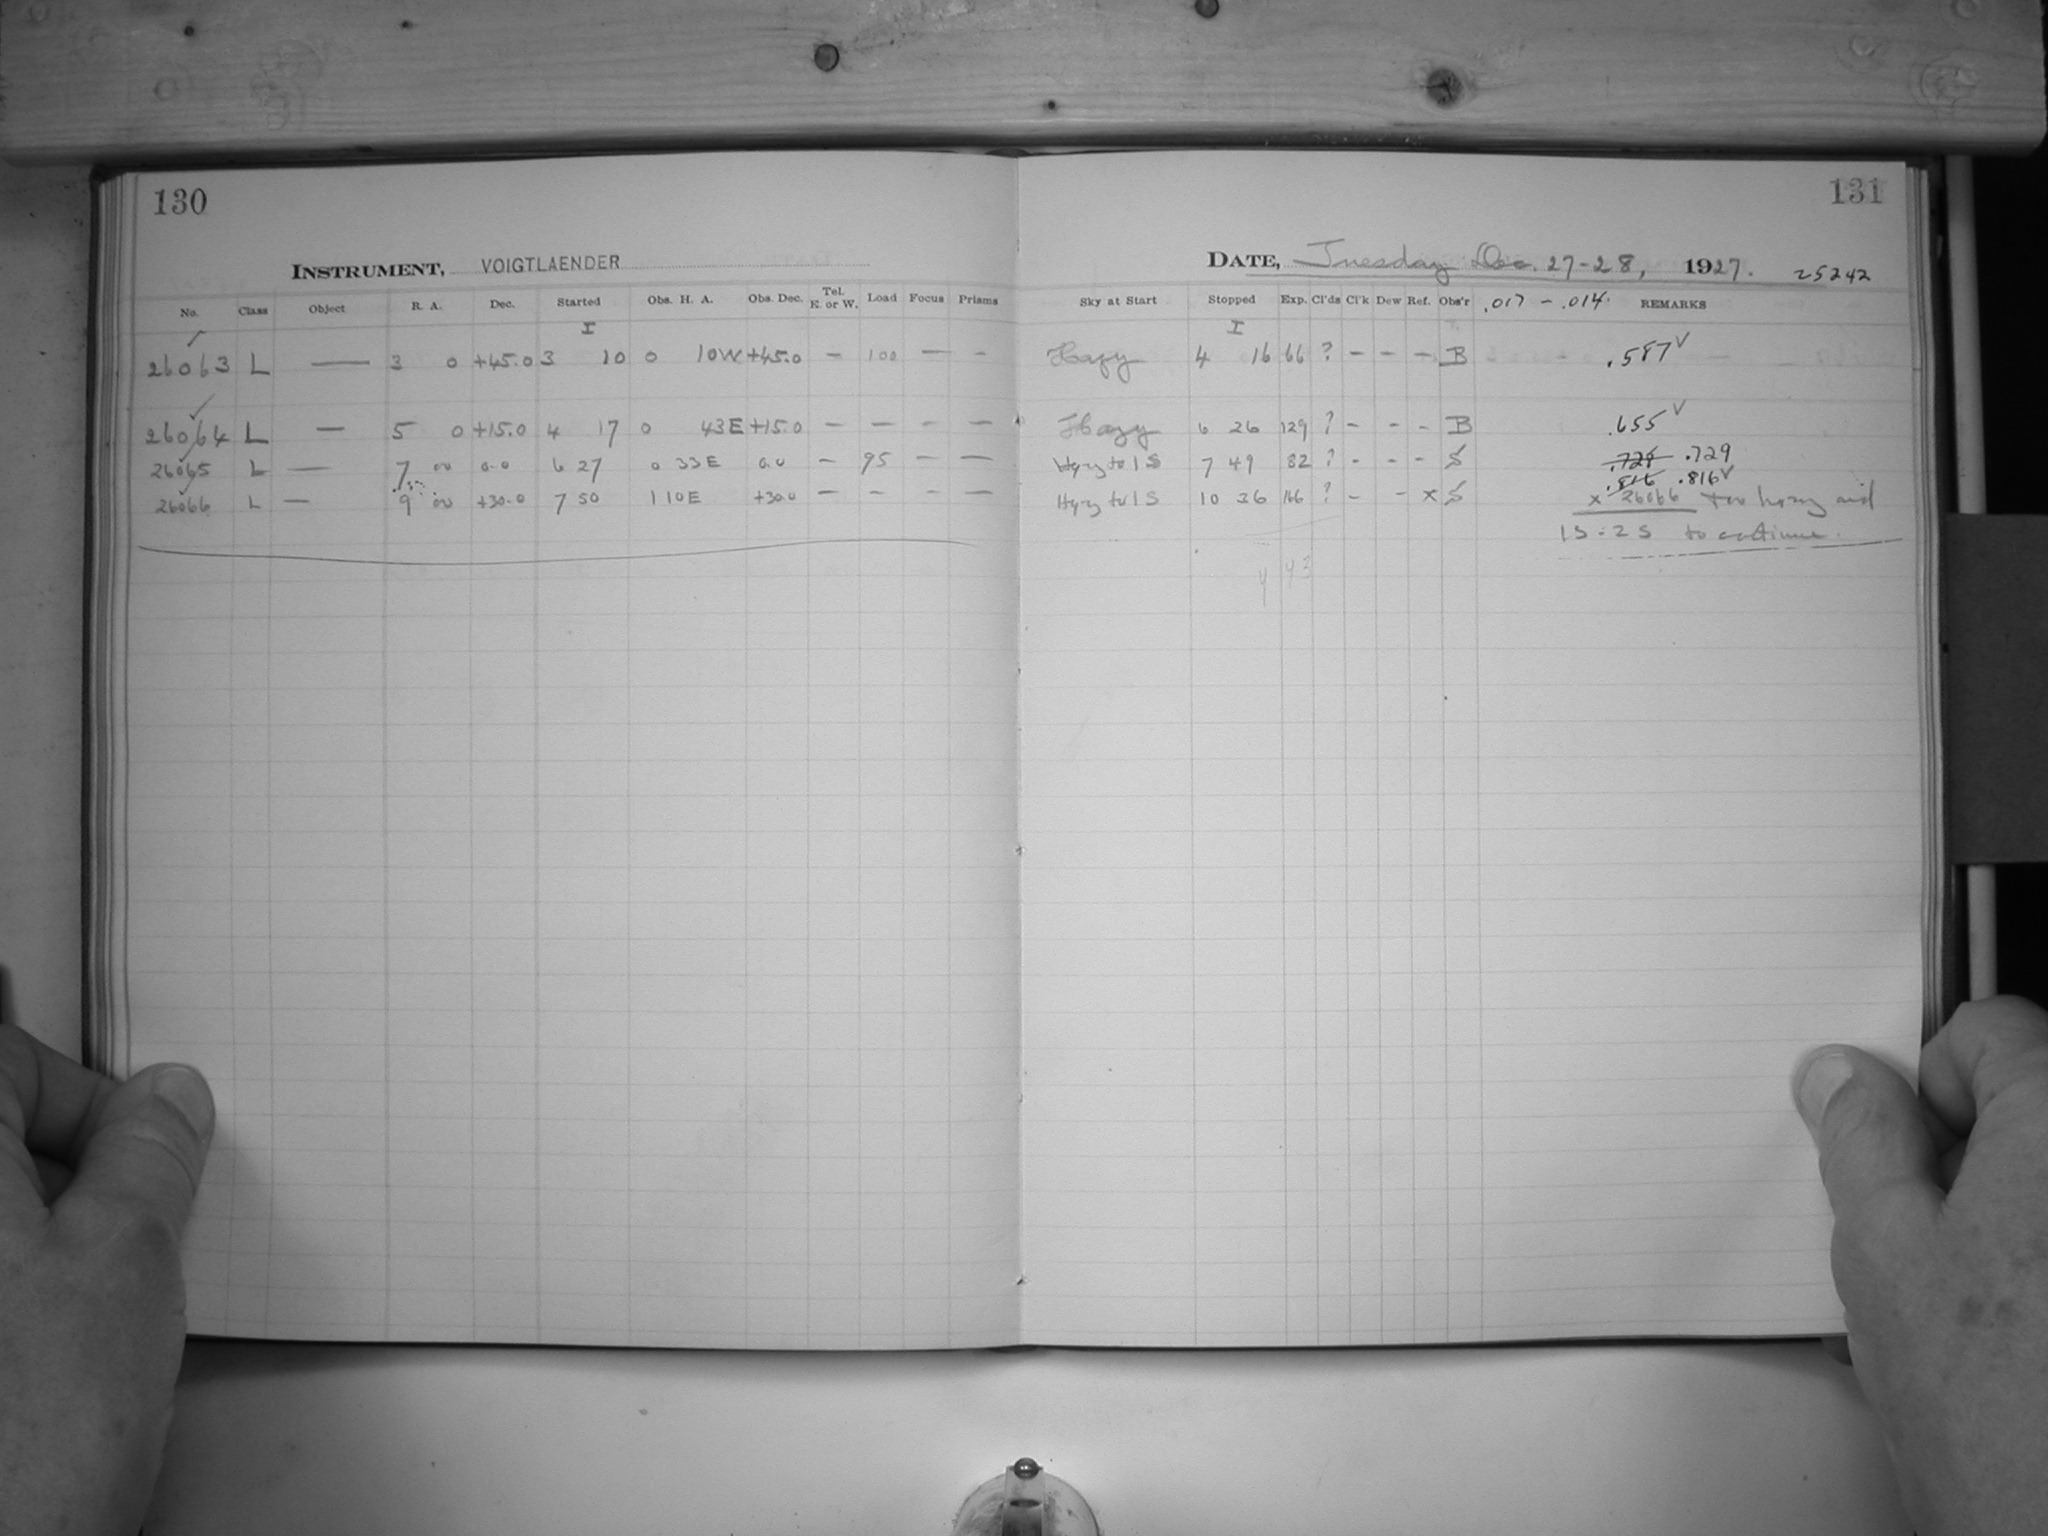 130
131
INSTRUMENT, VOIGTLAENDER
DATE, Tuesday Dec. 27-28, 1927. 25242
No. Class Object R. A. Dec. Started Obs. H. A. Obs. Dec. Tel. E. or W. Load Focus Prisms Sky at Start Stopped Exp. Cl'ds Cl'k Dew Ref. Obs'r .017 - .014 REMARKS
I I
26063 L — 3 0 +45.0 3 10 0 10W +45.0 — 100 — — Hazy 4 16 66 ? — — — B .587 V
26064 L — 5 0 +15.0 4 17 0 43E +15.0 — — — — Hazy 6 26 129 ? — — — B .655 V
26065 L — 7 00 0.0 6 27 0 33E 0.0 — 95 — — Hazy to 1 S 7 49 82 ? - - - S .728 .729
.816 .816 V
26066 L — 9 00 +30.0 7 50 1 10E +30.0 — — — — Hazy to 1 S 10 36 166 ? — — x S x 26066 too hazy and
1S-2S to continue.
4 43